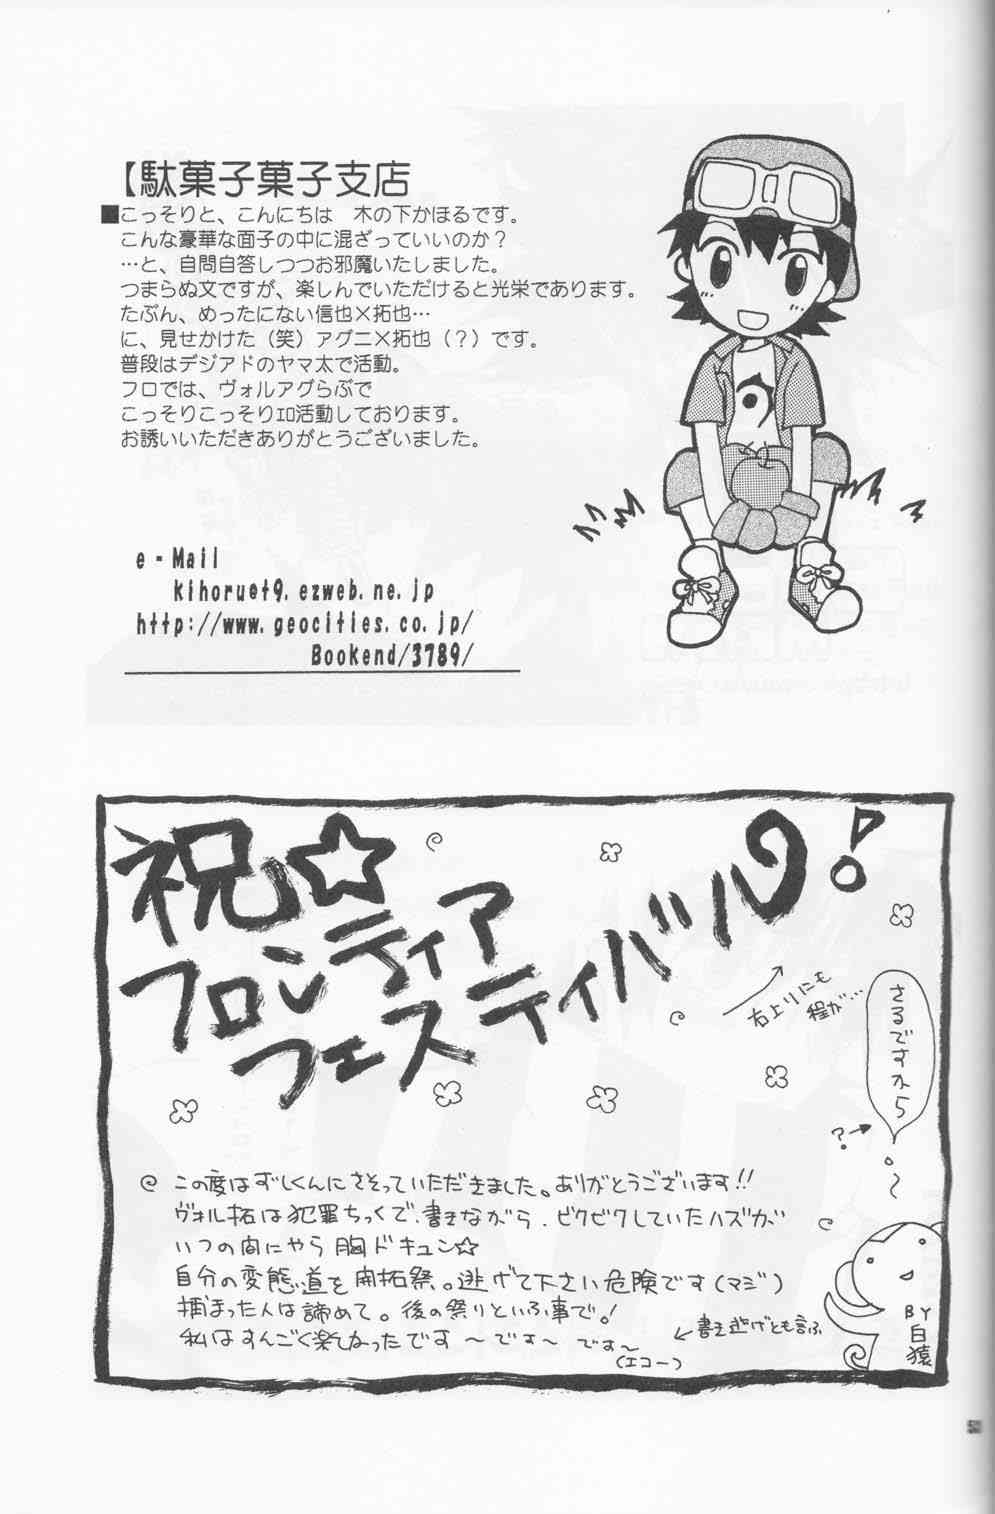 【駄菓子菓子支店
■こっそりと、こんにちは　木の下かほるです。
こんな豪華な面子の中に混ざっていいのか？
…と、自問自答しつつお邪魔いたしました。
つまらぬ文ですが、楽しんでいただけると光栄であります。
たぶん、めったにない信也×拓也…
に、見せかけた（笑）アグニ×拓也（？）です。
普段はデジアドのヤマ太で活動。
フロでは、ヴォルアグらぶで
こっそりこっそりｴﾛ活動しております。
お誘いいただきありがとうございました。
e-Mail
kihoruet9.ezweb.ne.jp
http://www.geocities.co.jp/
Bookend/3789/
祝☆
フロンティア
フェスティバル!
右上りにも
程が…
さるですから
?→
この度はずしくんにさそっていただきました。ありがとうございます!!
ヴォル拓は犯罪ちっくで、書きながら、ビクビクしていたハズが
いつの間にやら胸ドキュン☆
自分の変態道を開拓祭。逃げて下さい危険です(マジ)
捕まった人は諦めて。後の祭りといふ事で!
私はすんごく楽しかったです〜です〜です〜
(エコー)
←書き逃げとも言ふ
BY白猿